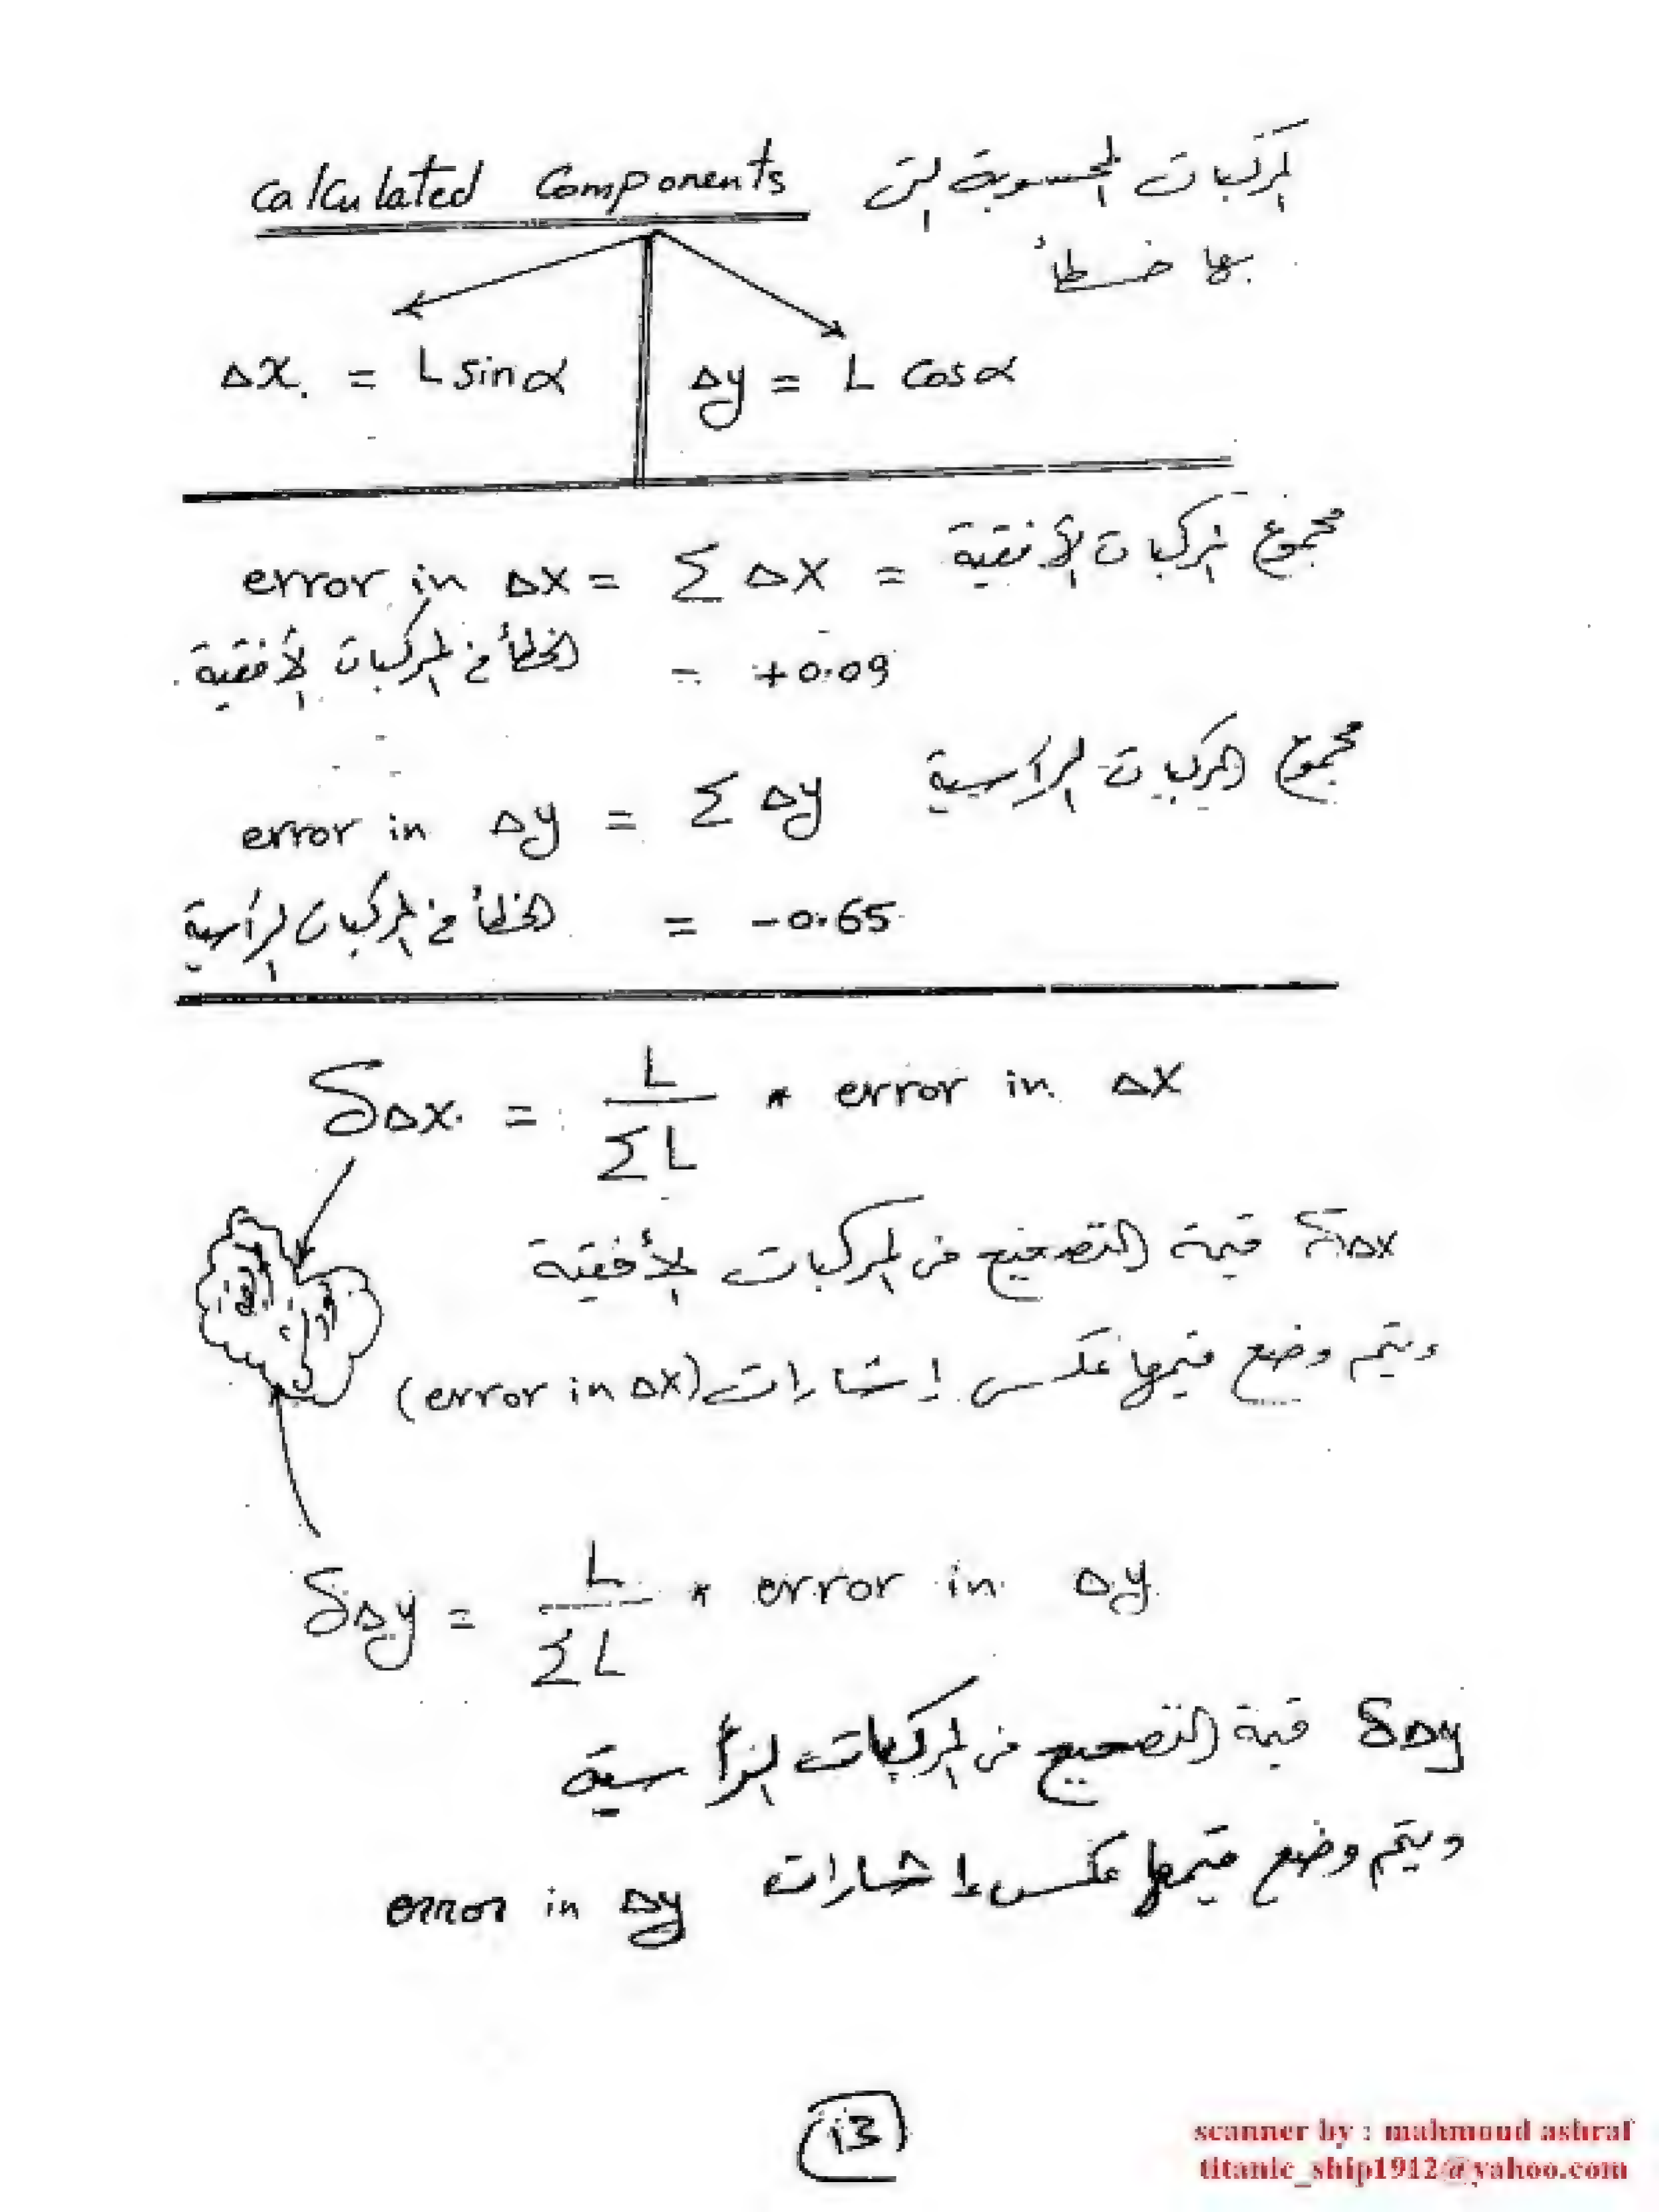 calculated Components المركبات المحسوبة التى
بها خطأ
Δx = L sinα
Δy = L cosα
error in Δx = Σ Δx = مجموع المركبات الأفقية
الخطأ فى المركبات الأفقية = +0.09
error in Δy = Σ Δy مجموع المركبات الرأسية
الخطأ فى المركبات الرأسية = -0.65
δΔx = L / ΣL * error in Δx
δΔx قيمة التصحيح فى المركبات الأفقية
ويتم وضع قيمها عكس إشارات (error in Δx)
δΔy = L / ΣL * error in Δy
δΔy قيمة التصحيح فى المركبات الرأسية
ويتم وضع قيمها عكس إشارات error in Δy
13
scanner by : mahmoud ashraf
titanic_ship1912@yahoo.com